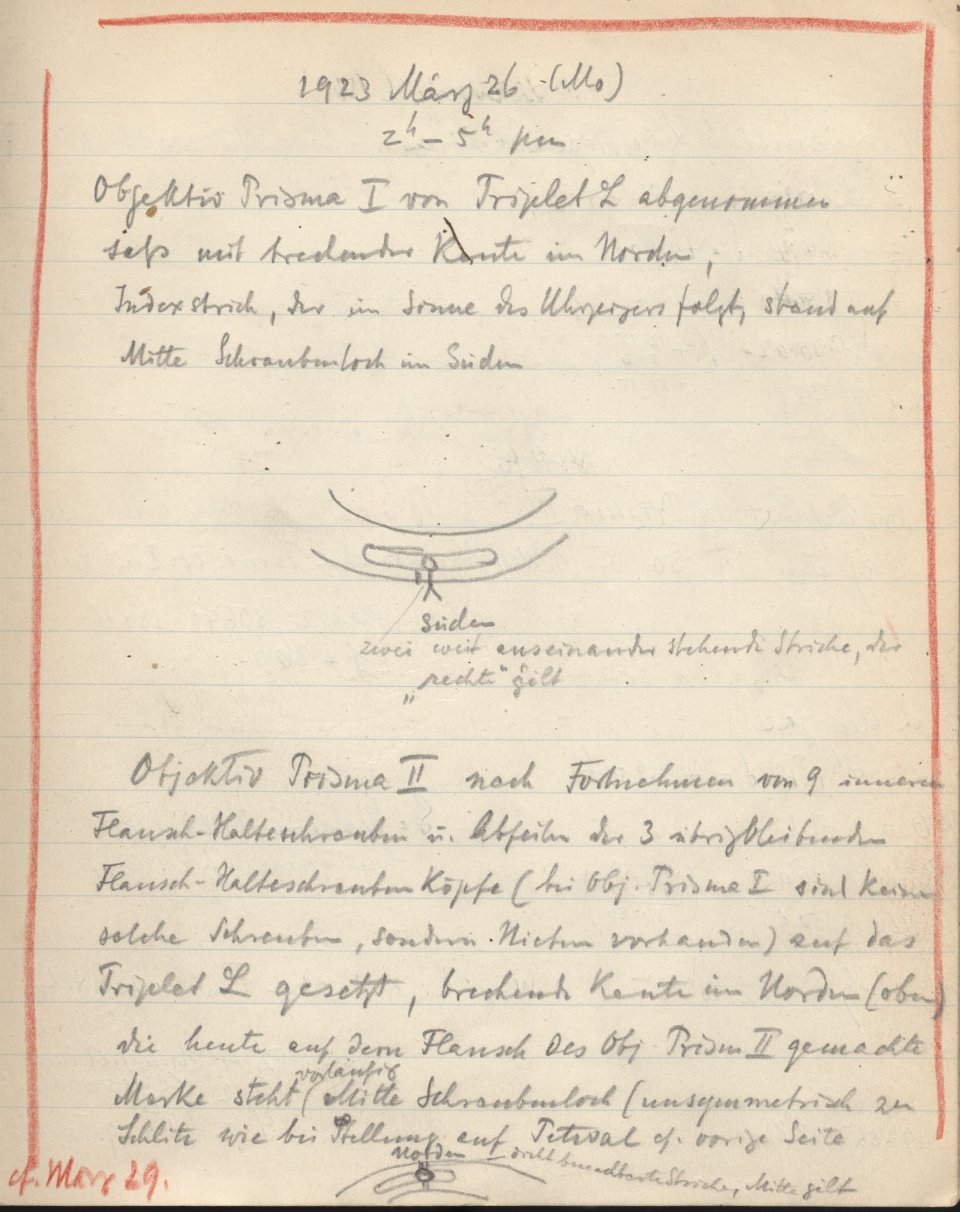 1923 März 26 (Mo)
2h – 5h pm
Objektiv Prisma I von Triplet L abgenommen
saß mit brechender Kante im Norden,
Indexstrich, der im Sinne des Uhrzeigers folgt, stand auf
Mitte Schraubenloch im Süden
Süden
zwei weit auseinander stehende Striche, der
„rechte“ gilt
Objektiv Prisma II nach Fortnehmen von 9 inneren
Flansch-Halteschrauben u. Abfeilen der 3 übrigbleibenden
Flansch-Halteschrauben Köpfe (bei Obj. Prisma I sind keine
solche Schrauben, sondern Nieten vorhanden) auf das
Triplet L gesetzt, brechende Kante im Norden (oben)
die heute auf dem Flansch des Obj Prism II gemachte
vorläufig
Marke steht (Mitte Schraubenloch (unsymmetrisch zu
Schlitz wie bei Stellung auf Petzval cf. vorige Seite
Norden – drei benachbarte Striche, Mitte gilt
cf. März 29.